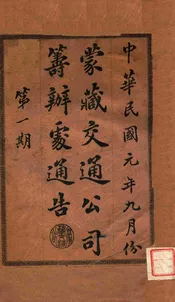 中華民國元年九月份
蒙藏交通公司
籌辦處通告
第一期